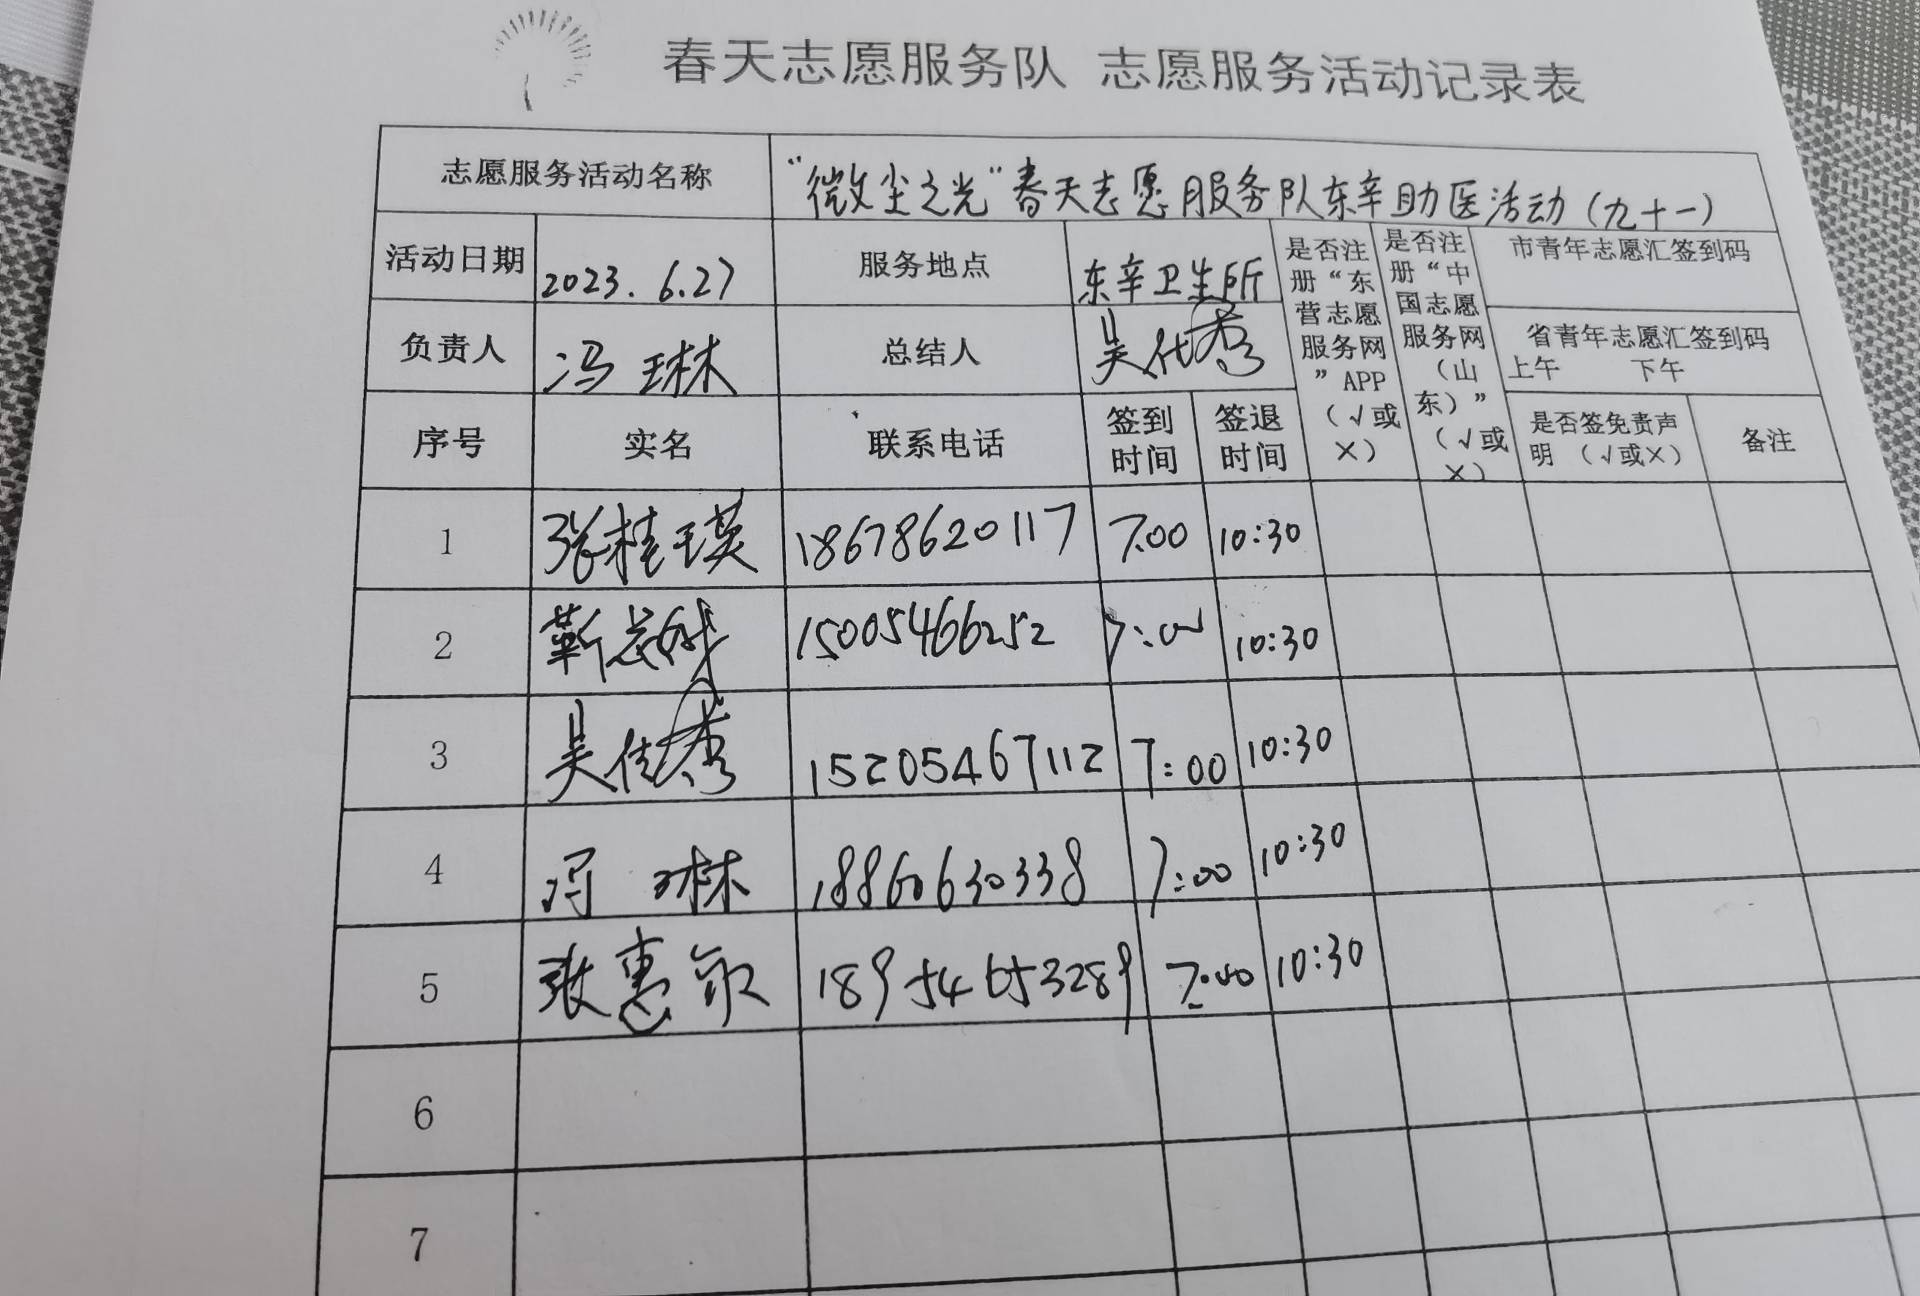 春天志愿服务队 志愿服务活动记录表
志愿服务活动名称 “微尘之光”春天志愿服务队东辛助医活动（九十一）
活动日期 2023.6.27 服务地点 东辛卫生所
是否注册“东营志愿服务网”APP（√或×）
是否注册“中国志愿服务网（山东）”（√或×）
市青年志愿汇签到码
负责人 冯琳 总结人 吴佳秀
省青年志愿汇签到码
上午 下午
序号 实名 联系电话 签到时间 签退时间 是否签免责声明（√或×） 备注
1 张桂瑛 18678620117 7:00 10:30
2 靳 15005466252 7:00 10:30
3 吴佳秀 15205467112 7:00 10:30
4 冯琳 18860630338 7:00 10:30
5 张惠敏 18954653289 7:00 10:30
6
7